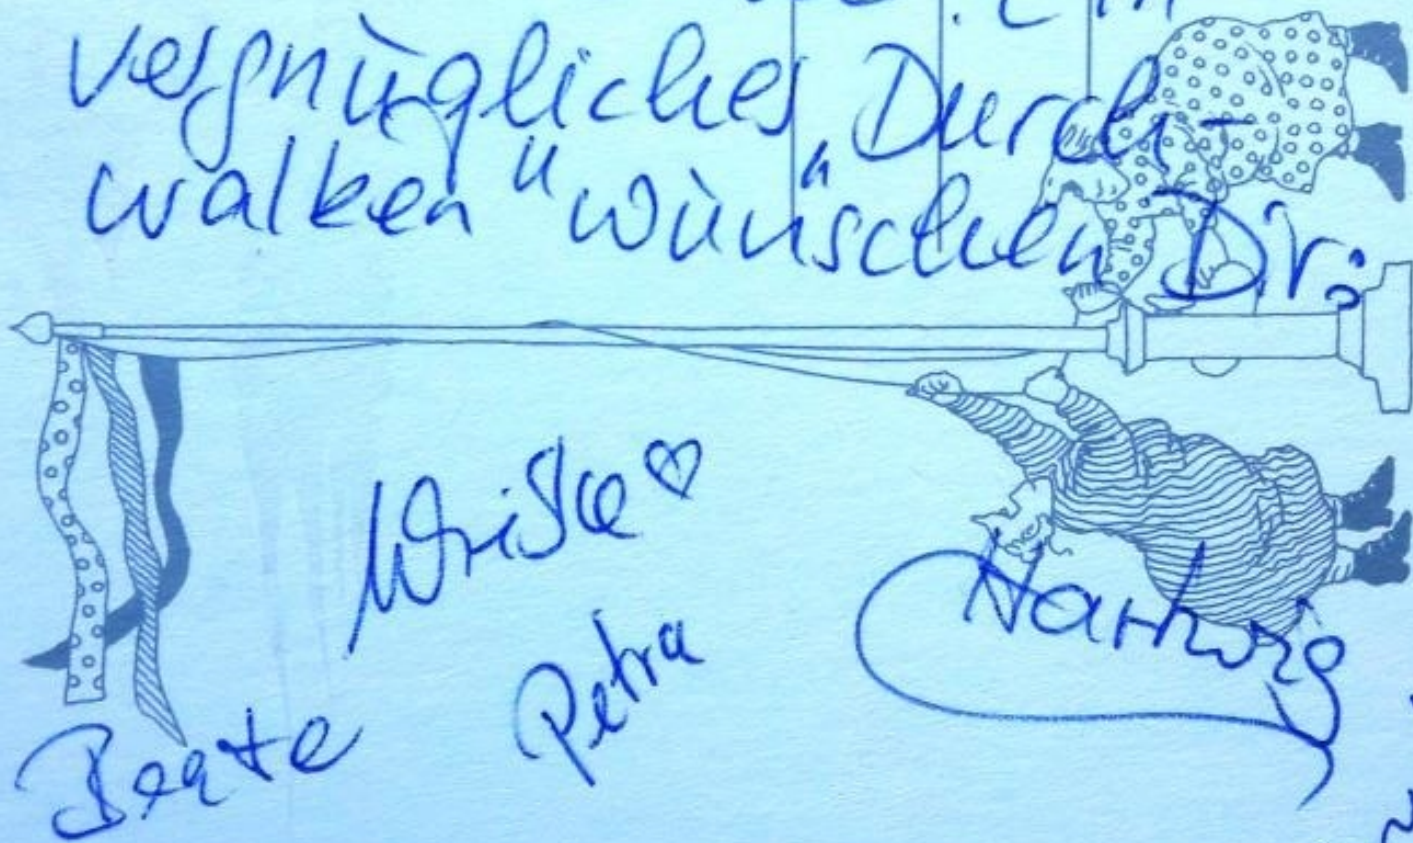 vergnügliches „Durch-
walken" wünschen Dir:
Ulrike ♡
Hartwig
Petra
Beate